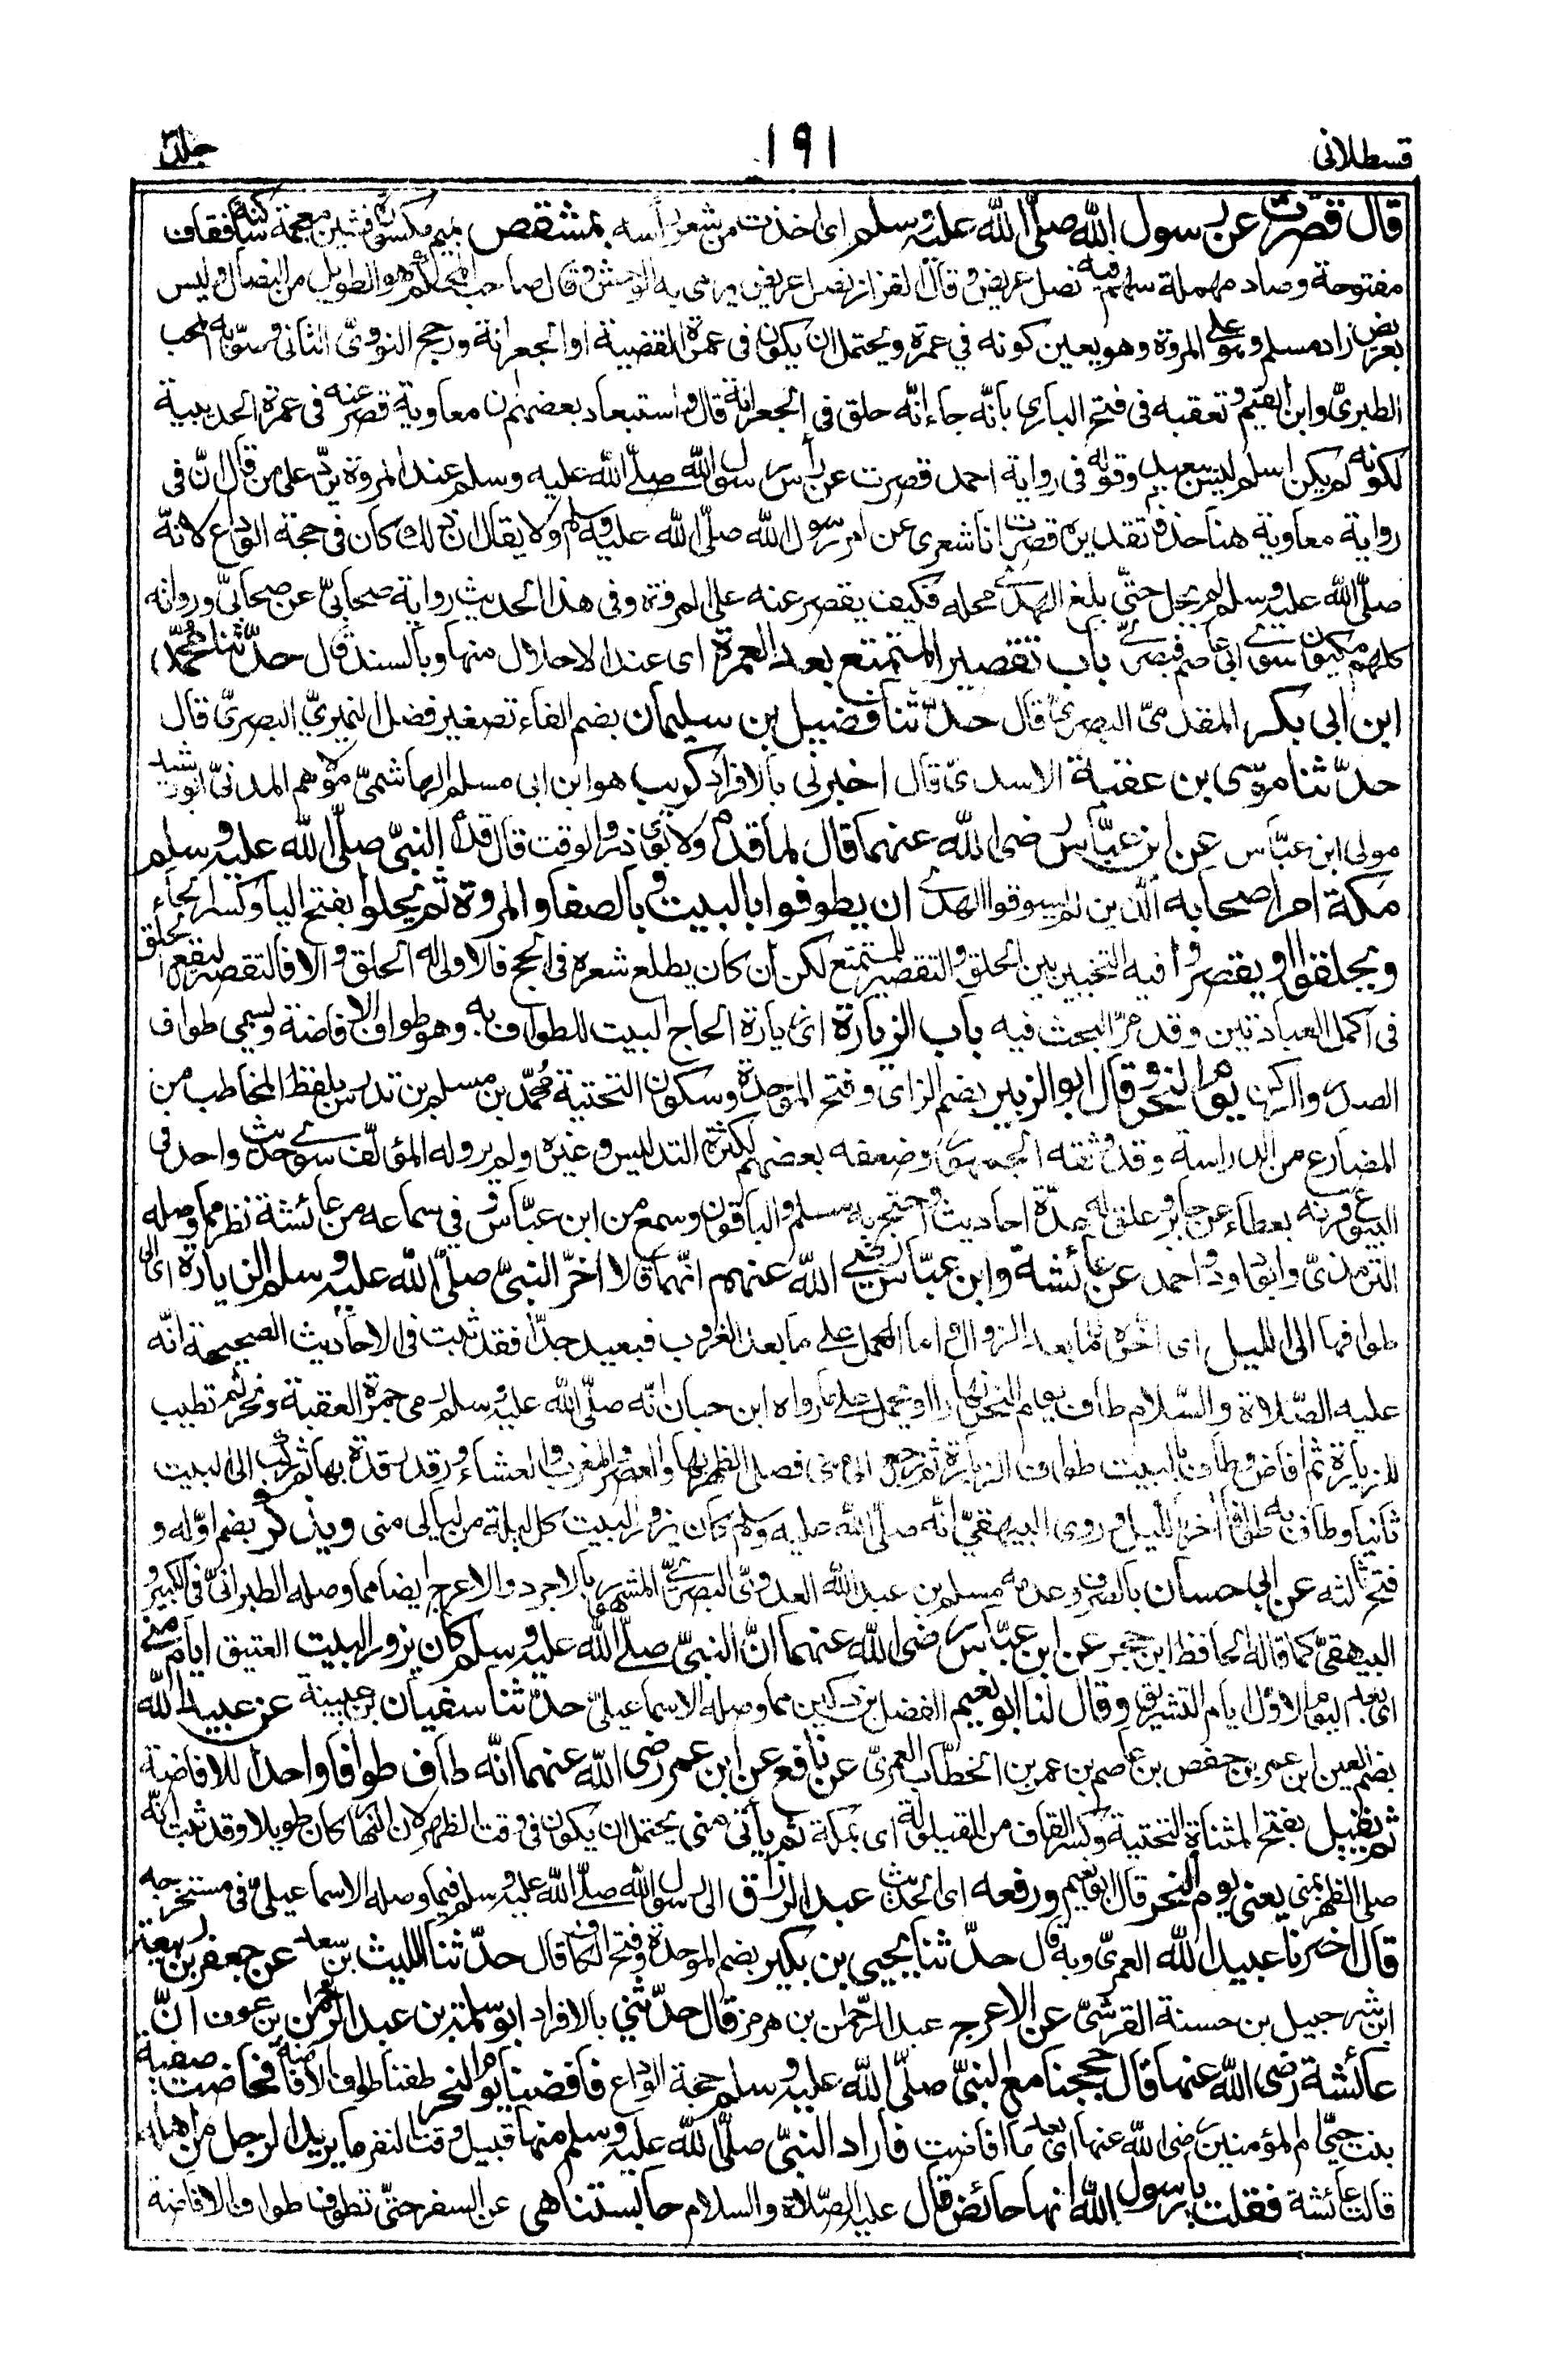 قسطلانی
١٩١
جلد٣
قال قصّرت عن رسول الله صلّى الله عليه وسلم اى اخذت من شعر رأسه بمشقص بميم مكسورة فشين معجمة ساكنة فقاف
مفتوحة وصاد مهملة سهم فيه نصل عريض وقال القزاز نصل عريض يرمى به الوحش وقال صاحب المحكم هو الطويل من النصال وليس
بعريض زاد مسلم وهو على المروة وهو يعين كونه في عمرة ويحتمل ان يكون فى عمرة القضية او الجعرانة ورجح النووىّ الثانى وصوّبه المحب
الطبرىّ وابن القيم وتعقبه فى فتح البارى بانّه جاء انّه حلق فى الجعرانة قال واستبعاد بعضهم ان معاوية قصر عنه فى عمرة الحديبية
لكونه لم يكن اسلم ليس ببعيد وقوله فى رواية احمد قصرت عن رأس رسول الله صلّى الله عليه وسلم عند المروة يردّ على من قال انّ فى
رواية معاوية هنا حذفا تقديره قصرت انا شعرى عن امر رسول الله صلّى الله عليه وسلم ولا يقال ان ذلك كان فى حجة الوداع لانّه
صلّى الله عليه وسلم لم يحل حتّى بلغ الهدى محله فكيف يقصر عنه على المروة وفى هذا الحديث رواية صحابىّ عن صحابىّ ورواته
كلهم مكيون سوى ابى عاصم فبصرىّ باب تقصير المتمتع بعد العمرة اى عند الاحلال منها وبالسند قال حدّثنا محمّد
ابن ابى بكر المقدمىّ البصرىّ قال حدّثنا فضيل بن سليمان بضم الفاء تصغير فضل النميرىّ البصرىّ قال
حدّثنا موسى بن عقبة الاسدىّ قال اخبرنى بالافراد كريب هو ابن ابى مسلم الهاشمىّ مولاهم المدنىّ ابو رشدين
مولى ابن عبّاس عن ابن عبّاس رضى الله عنهما قال لما قدم ولابوى ذر والوقت قال قدم النبىّ صلّى الله عليه وسلم
مكة امر اصحابه الّذين لم يسوقوا الهدى ان يطوفوا بالبيت وبالصفا والمروة ثم يحلوا بفتح الياء وكسر الحاء
ويحلقوا او يقصروا فيه التخيير بين الحلق والتقصير للمتمتع لكن ان كان يطلع شعره فى الحج فالاولى له الحلق والا فالتقصير ليقع الحلق
فى اكمل العبادتين وقد مرّ البحث فيه باب الزيارة اى زيارة الحاج البيت للطواف به وهو طواف الافاضة ويسمى طواف
الصدر والركن يوم النحر وقال ابو الزبير بضم الزاى وفتح الموحدة وسكون التحتية محمّد بن مسلم بن تدرس بلفظ المخاطب من
المضارع من الدراسة وقد وثقه الجمهور وضعفه بعضهم لكثرة التدليس وغيره ولم يرو له المؤلّف سوى حديث واحد فى
البيوع قرنه بعطاء عن جابر وعلق له عدّة احاديث واحتج به مسلم والباقون وسمع من ابن عبّاس وفى سماعه من عائشة نظر مما وصله
الترمذىّ وابو داود واحمد عن عائشة وابن عبّاس رضى الله عنهم انّهما قالا اخّر النبىّ صلّى الله عليه وسلم الزيارة اى
طوافها الى الليل اى اخّره لما بعد الزوال واما الحمل على ما بعد الغروب فبعيد جدّا فقد ثبت فى الاحاديث الصحيحة انّه
عليه الصّلاة والسّلام طاف يوم النحر نهارا او يحمل على ما رواه ابن حبان انّه صلّى الله عليه وسلم رمى جمرة العقبة ونحر ثم تطيب
للزيارة ثم افاض وطاف بالبيت طواف الزيارة ثم رجع الى منى فصلى الظهر بها والعصر والمغرب والعشاء ورقد رقدة بها ثم ركب الى البيت
ثانيا وطاف به طوافا آخر بالليل وروى البيهقىّ انّه صلّى الله عليه وسلم كان يزور البيت كل ليلة من ليالى منى ويذكر بضم اوّله و
فتح ثالثه عن ابى حسان بالصرف وعدمه مسلم بن عبد الله العدوىّ البصرىّ المشهور بالاجرد والاعرج ايضا مما وصله الطبرانىّ فى الكبير و
البيهقىّ كما قاله الحافظ ابن حجر عن ابن عبّاس رضى الله عنهما انّ النبىّ صلّى الله عليه وسلم كان يزور البيت العتيق ايام منى
اى بعد اليوم الاول ايام التشريق وقال لنا ابو نعيم الفضل بن دكين مما وصله الاسماعيلىّ حدّثنا سفيان بن عيينة عن عبيد الله
بضم العين ابن عمر بن حفص بن عاصم بن عمر بن الخطّاب العمرىّ عن نافع عن ابن عمر رضى الله عنهما انّه طاف طوافا واحدا للافاضة
ثم يقيل بفتح المثناة التحتية وكسر القاف من القيلولة اى بمكة ثم يأتى منى يحتمل ان يكون فى وقت الظهر لان النهار كان طويلا وقد ثبت انّه
صلى الظهر بمنى يعنى يوم النحر قال ابو نعيم ورفعه اى الحديث عبد الرزاق الى رسول الله صلّى الله عليه وسلم فيما وصله الاسماعيلىّ فى مستخرجه
قال اخبرنا عبيد الله العمرىّ وبه قال حدّثنا يحيى بن بكير بضم الموحدة وفتح الكاف قال حدّثنا الليث بن سعد عن جعفر بن ربيعة
ابن شرحبيل بن حسنة القرشىّ عن الاعرج عبد الرّحمٰن بن هرمز قال حدّثنى بالافراد ابو سلمة بن عبد الرحمٰن بن عوف انّ
عائشة رضى الله عنها قالت حججنا مع النبىّ صلّى الله عليه وسلم حجة الوداع فافضنا يوم النحر طفنا طواف الافاضة فحاضت صفية
بنت حيىّ ام المؤمنين رضى الله عنها اى بعد ما افاضت فاراد النبىّ صلّى الله عليه وسلم منها قبيل وقت النفر ما يريد الرجل من اهله
قالت عائشة فقلت يا رسول الله انها حائض قال عليه الصّلاة والسلام حابستنا هى عن السفر حتّى تطوف طواف الافاضة